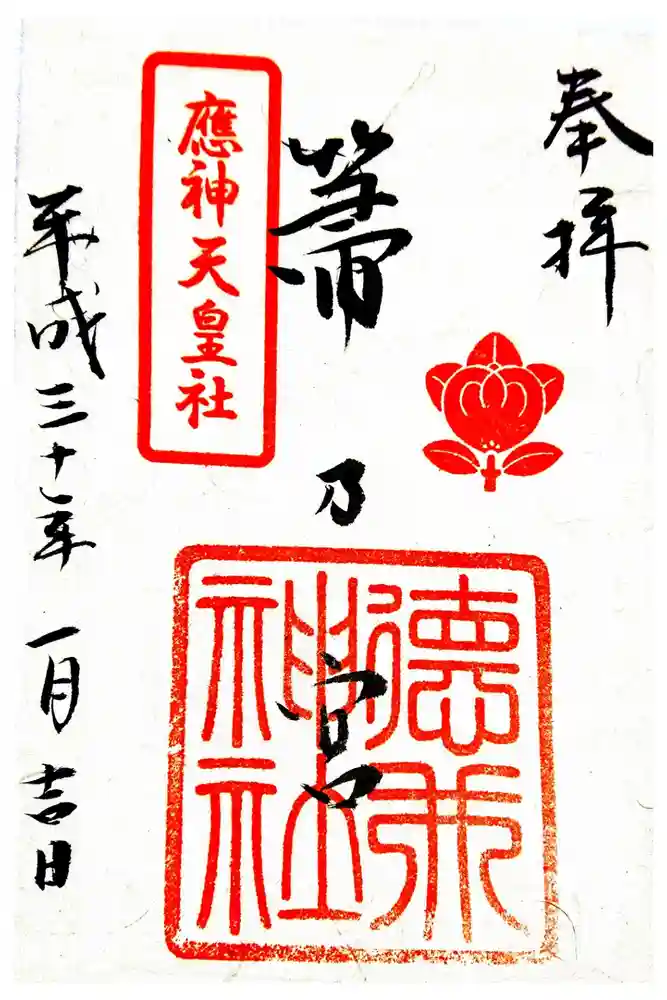 奉拝
箒乃宮
應神天皇社
德
神社
平成三十年一月吉日